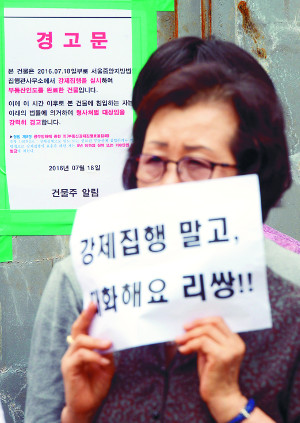 경고문
본 건물은 2016.07.18일부로 서울중앙지방법
집행관사무소에서 강제집행을 실시하여
부동산인도를 완료한 건물입니다.
이에 이 시간 이후로 본 건물에 침입하는 자는
아래의 법률에 의거하여 형사처벌 대상임을
강력히 경고합니다.
2016년 07월 18일
건물주 알림
강제집행 말고,
대화해요 리쌍!!